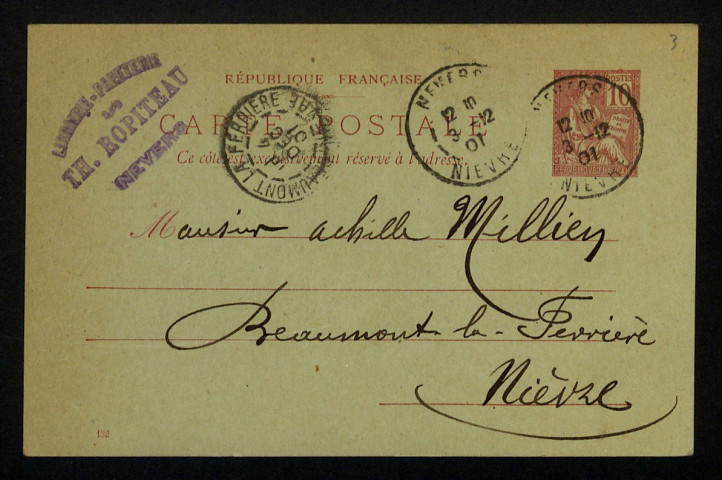 3
LIBRAIRIE-PAPETERIE
TH. ROPITEAU
NEVERS
RÉPUBLIQUE FRANÇAISE
CARTE POSTALE
Ce côté est exclusivement réservé à l'adresse.
BEAUMONT LA FERRIERE
NEVERS
12
3 -12
01
NIEVRE
POSTES
10
NEVERS
12
3 -12
01
NIEVRE
Monsieur achille Millien
Beaumont-la-Ferrière
Nièvre
132